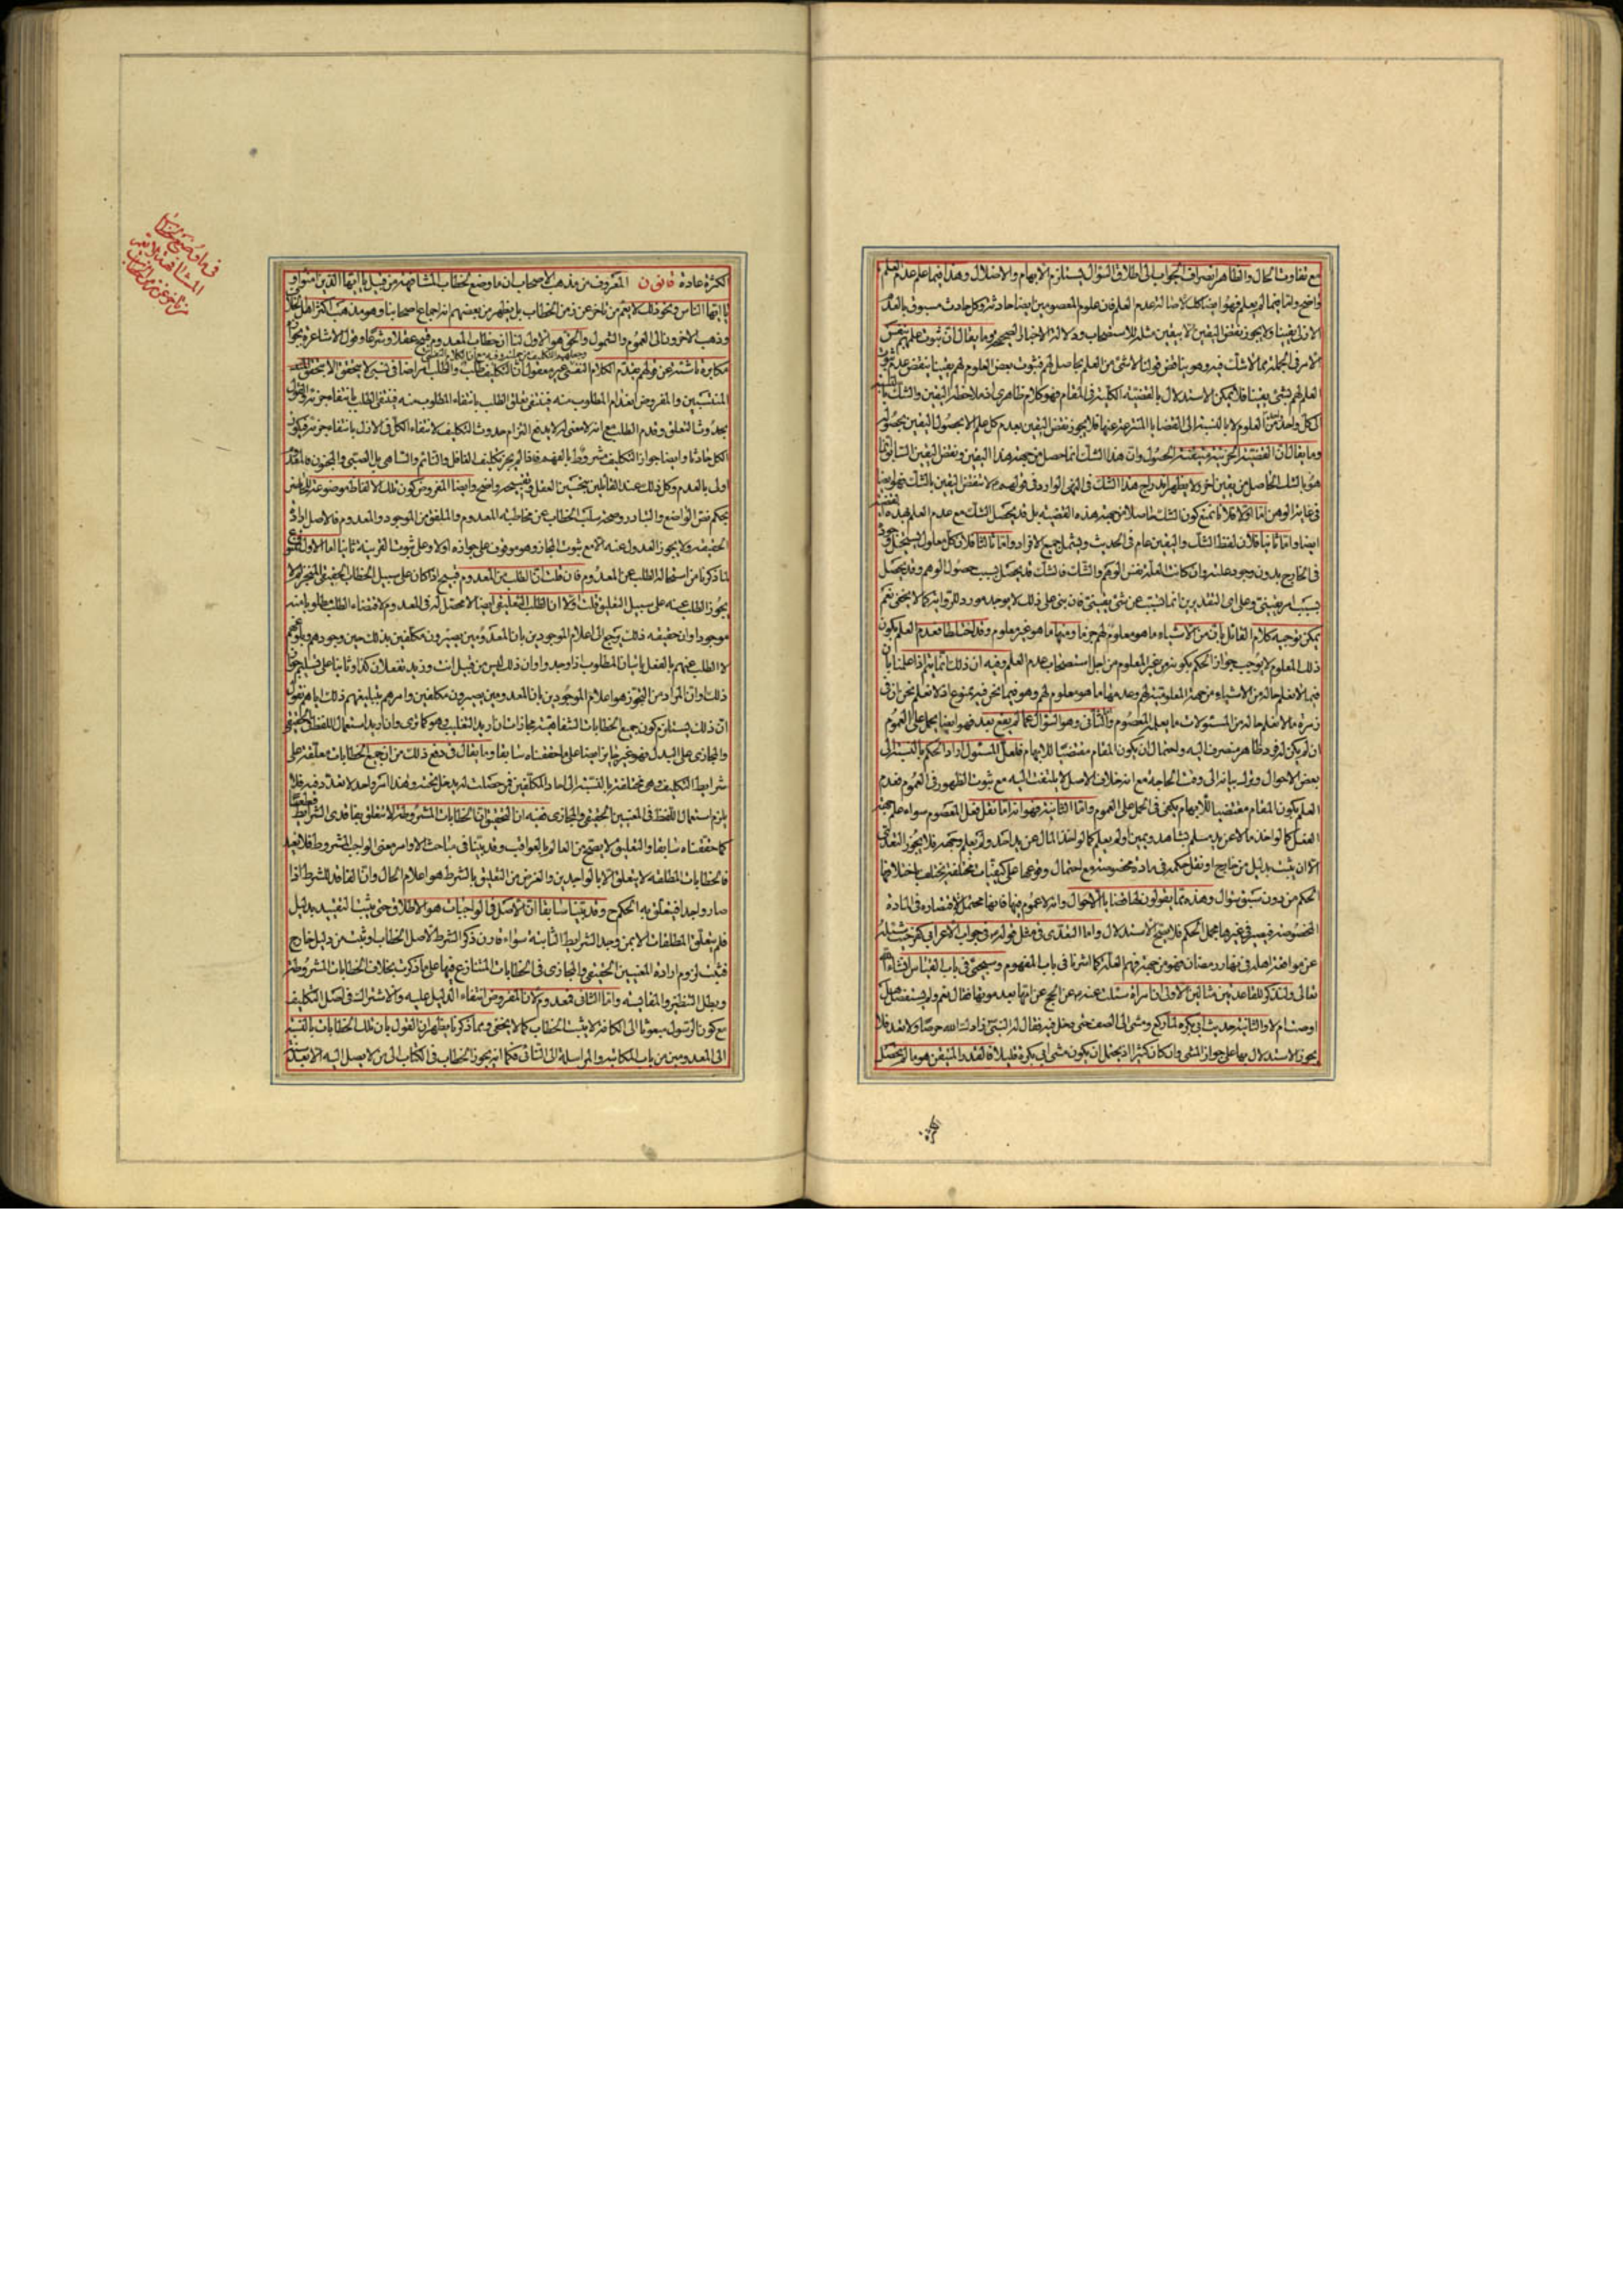 مع تفاوت الحال والظاهر انصراف الجواب الى اطلاق السؤال ويستلزم الابهام والاضلال وهذا فيما علم عدم العلم
واضح واما فيما لم يعلم فهو ايضا كك لاصالة عدم العلم فان علوم المعصومين ايضا حادثة وكل حادث مسبوق بالعدم
الازلى يقينا ولا يجوز نقض اليقين الا بيقين مثله للاستصحاب ودلالة الاخبار الصحيحة وما يقال ان ثبوت علمهم بنفس
الامر فى الجملة مما لا شك فيه وهو يناقض قولنا لا شئ من العلم بحاصل لهم فثبوت بعض العلوم لهم يقينا ينقض عدم ثبوت
العلم لهم بشئ يقينا فلا يمكن الاستدلال بالقضية الكلية فى المقام فهو كلام ظاهرى اذ ملاحظة اليقين والشك بالنسبة
الى كل واحد من العلوم لا بالنسبة الى القضايا المنتزعة عنها فلا يجوز نقض اليقين بعدم كل علم الا بحصول اليقين بحصوله
وما يقال ان القضية الجزئية متيقنة الحصول وان هذا الشك انما حصل من جهة هذا اليقين ونقض اليقين السابق انما
هو بالشك الحاصل من يقين اخر ولا يظهر اندراج هذا الشك فى النهى الوارد فى قولهم لا تنقض اليقين بالشك فهو ايضا
فى غاية الوهن اما اولا فلانا نمنع كون الشك حاصلا من جهة هذه القضية بل قد يحصل الشك مع عدم العلم بهذه القضية
ايضا واما ثانيا فلان لفظ الشك واليقين عام فى الحديث ويشمل جميع الافراد واما ثالثا فلان كل معلول يستحيل وجوده
فى الخارج بدون وجود علته وان كانت العلة نفس الوهم والشك فالشك قد يحصل بسبب حصول الوهم وقد يحصل
بسبب امر يقينى وعلى اى التقديرين انما تسبب عن شئ يقينى فان بنى على ذلك لا يوجد مورد للرواية كما لا يخفى نعم
يمكن توجيه كلام القائل بان من الاشياء ما هو معلوم لهم جزما ومنها ما هو غير معلوم وقد اختلطا فعدم العلم بكون
ذلك المعلوم لا يوجب جواز الحكم بكونه من غير المعلوم من اجل استصحاب عدم العلم وفيه ان ذلك انما يتم اذا علمنا بان
فيما لا نعلم حاله من الاشياء من جهة المعلومية لهم وعدمها ما هو معلوم لهم وهو فيما نحن فيه ممنوع اذ لا نعلم نحن ان فى
زمرة ما لا نعلم حاله من المسئولات ما يعلمه المعصوم والثانى وهو السؤال عما لم يقع بعد فهو ايضا يحمل على العموم
ان لم يكن له فرد ظاهر ينصرف اليه واحتمال ان يكون المقام مقتضيا للابهام فلعل المسئول اراد الحكم بالنسبة الى
بعض الاحوال وترك بيانه الى وقت الحاجة مع انه خلاف الاصل لا يلتفت اليه مع ثبوت الظهور فى العموم فعدم
العلم بكون المقام مقتضيا للابهام يكفى فى الحمل على العموم واما الثانية فهو انه اما نقل فعل المعصوم سواء علم جهة
الفعل كما لو اخذ مالا عن يد مسلم بشاهد ويمين او لم يعلم كما لو اخذ المال عن يد احد ولم يعلم وجهه فلا يجوز التعدى
الا ان يثبت بدليل من خارج او نقل حكمه فى مادة مخصوصة مع احتمال وقوعها على كيفيات مختلفة يختلف باختلافها
الحكم من دون سبق سؤال وهذه مما يقولون لها قضايا الاحوال وانه لا عموم فيها فانها محتمل الاقتصاره فى المادة
المخصوصة فيصير فى غيرها مجمل الحكم فلا يتم الاستدلال واما التعدى فى مثل قوله فى جواب الاعرابى كفر حيث سئله
عن مواقعة اهله فى نهار رمضان فهو من جهة فهم العلة كما اشرنا فى باب المفهوم وسيجئ فى باب القياس انشاء الله
تعالى ولنذكر للقاعدتين مثالين الاولى ان امراة سئلت عنه عن الحج عن امها بعد موتها فقال نعم ولم يستفصل هل
اوصت ام لا والثانية حديث ابى بكرة لما ركع ومشى الى الصف حتى دخل فيه فقال له النبى زادك الله حرصا ولا تعد فلا
يجوز الاستدلال بها على جواز المشى وان كان كثيرا اذ يحتمل ان يكون مشى ابى بكرة قليلا فالقدر المتيقن هو ما لم يحصل
الكثرة عادة قانون المعروف من مذهب الاصحاب ان ما وضع لخطاب المشافهة من قبيل يا ايها الذين امنوا و
يا ايها الناس ونحو ذلك لا يعم من تاخر عن زمن الخطاب بل يظهر من بعضهم انه اجماع اصحابنا وهو مذهب اكثر اهل الخلاف
وذهب الاخرون الى العموم والشمول والحق هو الاول لنا ان خطاب المعدوم قبيح عقلا وشرعا وقول الاشاعرة بجوازه
مكابرة ناشئة عن قولهم بقدم الكلام النفسى غير معقول لان التكليف طلب والطلب امر اضافى نسبى لا يتحقق الا بتحقق
المنتسبين والمفروض انعدام المطلوب منه فينتفى تعلق الطلب بانتفاء المطلوب منه فينتفى الطلب بانتفاء جزئه والقول
بحدوث التعلق وقدم الطلب مع انه لا معنى له لا يدفع التزام حدوث التكليف لانتفاء الكل فى الازل بانتفاء جزئه فيكون
الكل حادثا وايضا جواز التكليف مشروط بالفهم فاذا لم يجز تكليف الغافل والنائم والساهى بل الصبى والمجنون فالمعدوم
اولى بالعدم وكل ذلك عند القائلين بتحسين العقل وتقبيحه واضح وايضا المفروض كون تلك الالفاظ موضوعة للحاضرين
بحكم نص الواضع والتبادر وصحة سلب الخطاب عن مخاطبة المعدوم والملفق من الموجود والمعدوم فالاصل ارادة
الحقيقة ولا يجوز العدول عنه الا مع ثبوت المجاز وهو موقوف على جوازه اولا وعلى ثبوت القرينة ثانيا اما الاول
لما ذكرنا من استحالة الطلب عن المعدوم فان قلت ان الطلب من المعدوم قبيح اذا كان على سبيل الخطاب الحقيقى المنجز لم لا
يجوز الطلب عنه على سبيل التعليق قلت اولا ان الطلب التعليقى ايضا لا محصل له فى المعدوم لاقتضاء الطلب مطلوبا منه
موجودا وان حقيقة ذلك يرجع الى اعلام الموجودين بان المعدومين يصيرون مكلفين بذلك حين وجودهم وبلوغهم
لا الطلب عنهم بالفعل باتيان المطلوب اذا وجدوا وان ذلك ليس من قبيل انت وزيد تفعلان كذا وثانيا على تسليم جواز
ذلك وان المراد من التجوز هو اعلام الموجودين بان المعدومين يصيرون مكلفين وامرهم بتبليغهم ذلك اياهم نقول
ان ذلك يستلزم كون جميع الخطابات الشفاهية مجازات ان اريد التغليب وهو كما ترى وان اريد استعمال اللفظ الحقيقى
والمجازى على البدل فهو غير جايز ايضا على ما حققناه سابقا وما يقال فى دفع ذلك من ان جميع الخطابات معلقة على
شرايط التكليف وهى مختلفة بالنسبة الى احاد المكلفين فمن حصلت له يدخل تحته وهذا امر واحد لا تعدد فيه فلا
يلزم استعمال اللفظ فى المعنيين الحقيقى والمجازى ففيه ان التحقيق ان الخطابات المشروطة لا تتعلق بفاقدى الشرايط
كما حققناه سابقا والتعليق لا يصح من العالم بالعواقب وقد بينا فى مباحث الاوامر معنى الواجب المشروط فلا نعيد
فالخطابات المطلقة لا يتعلق الا بالواجدين والغرض من التعليق بالشرط هو اعلام الحال وان الفاقد للشرط اذا
صار واجدا فيتعلق به الحكم ح وقد بينا سابقا ان الاصل فى الواجبات هو الاطلاق حتى يثبت التقييد بدليل
فلم يتعلق المطلقات الا بمن وجد الشرايط الثابتة سواء قارن ذكر الشرط لاصل الخطاب او ثبت من دليل خارج
فثبت لزوم ارادة المعنيين الحقيقى والمجازى فى الخطابات المتنازع فيها على ما ذكرت بخلاف الخطابات المشروطة
وبطل التنظير والمقايسة واما الثانى فمعدوم لان المفروض انتفاء الدليل عليه والاشتراك فى اصل التكليف
مع كون الرسول مبعوثا الى الكافة لا يثبت الخطاب كما لا يخفى ومما ذكرنا يظهر ان القول بان تلك الخطابات بالنسبة
الى المعدومين من باب المكاتبة والمراسلة الى النائى فكما انه يجوز الخطاب فى الكتاب الى من لا يصل اليه الا بعد